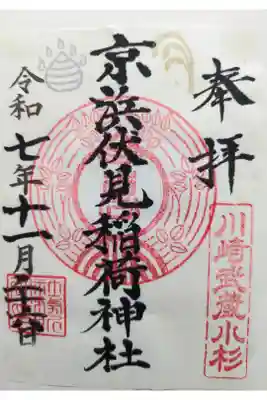 奉拝
川崎武蔵小杉
京浜伏見稲荷神社
令和七年十一月二十六日